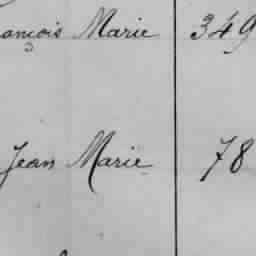 ançois Marie 349
Jean Marie 78